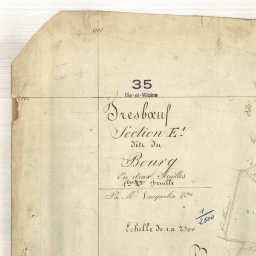 35
Ille-et-Vilaine
Tresbœuf
Section E.
dite du
Bourg
En deux feuilles
1ère feuille
Par Mr
Echelle de 1 a 2500
1/2500